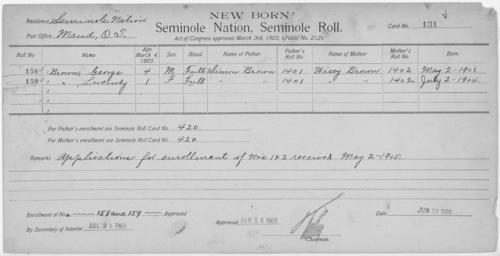 NEW BORN
Residence, Seminole Nation
Seminole Nation, Seminole Roll.
Card No. 131
Post Office, Maud, O.T.
Act of Congress approved March 3rd, 1905, (Public No. 212)
Roll No Name Age March 4, 1905 Sex. Blood. Name of Father. Father's Roll No. Name of Mother Mother's Roll No. Born.
158 Brown, George 4 M Full Simon Brown 1401 Wisey Brown 1402 May 2-1901
159 " 1 F Full " " 1401 " " 1402 July 2-1904
For Father's enrollment see Seminole Roll Card No. 420
For Mother's enrollment see Seminole Roll Card No. 420
Remarks Application for enrollment of No's 1&2 received May 2-1905.
Enrollment of No 158 and 159 Approved
By Secretary of Interior 1905
Approved 1905
Chairman.
Date, JUN 1905